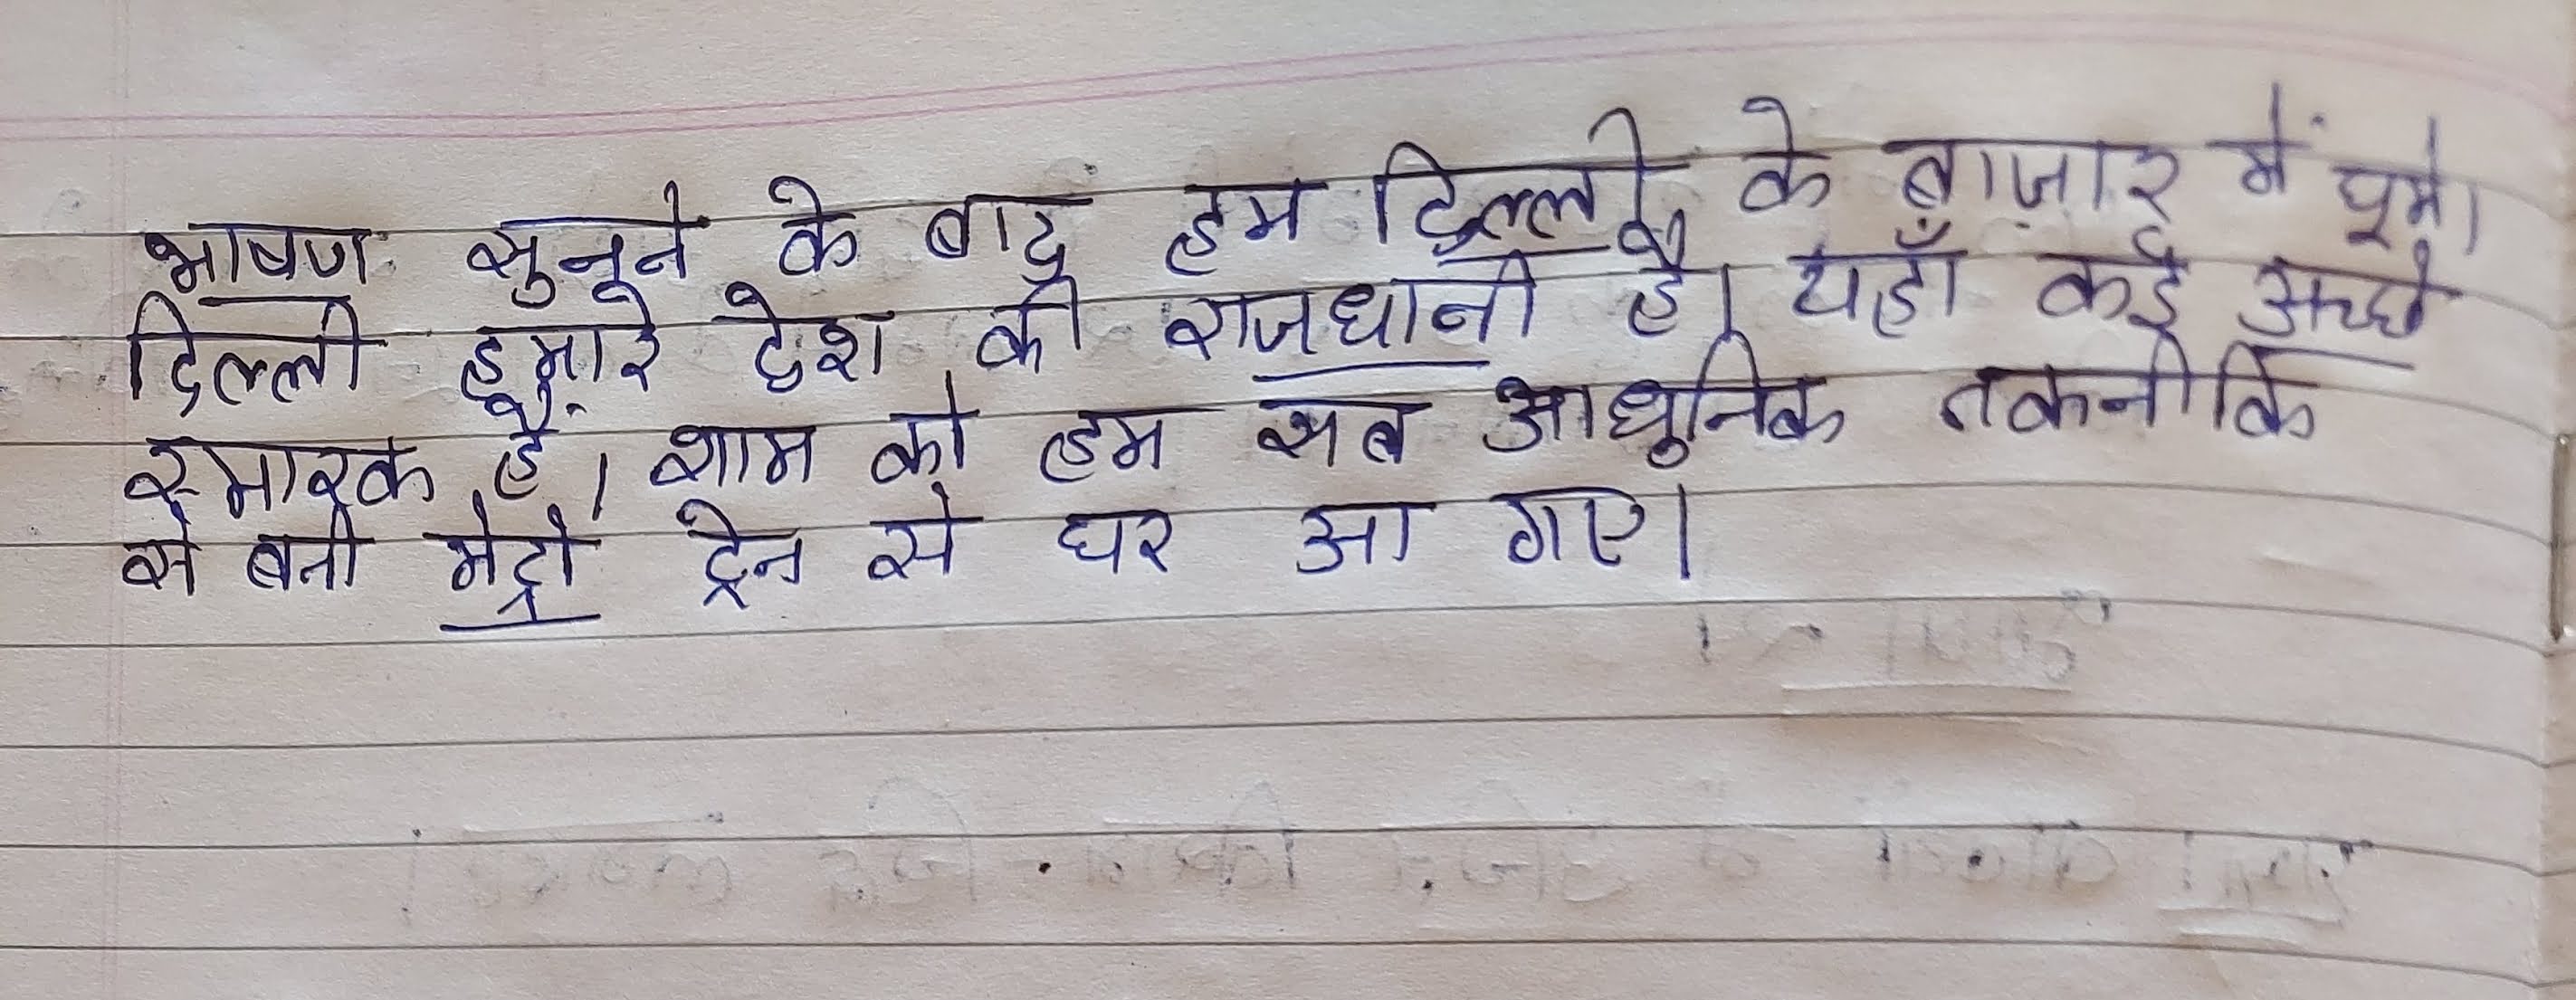 भाषण सुनने के बाद हम दिल्ली के बाज़ार में घूमे।
दिल्ली हमारे देश की राजधानी है। यहाँ कई अच्छे
स्मारक हैं। शाम को हम सब आधुनिक तकनीकि
से बनी मेट्रो ट्रेन से घर आ गए।